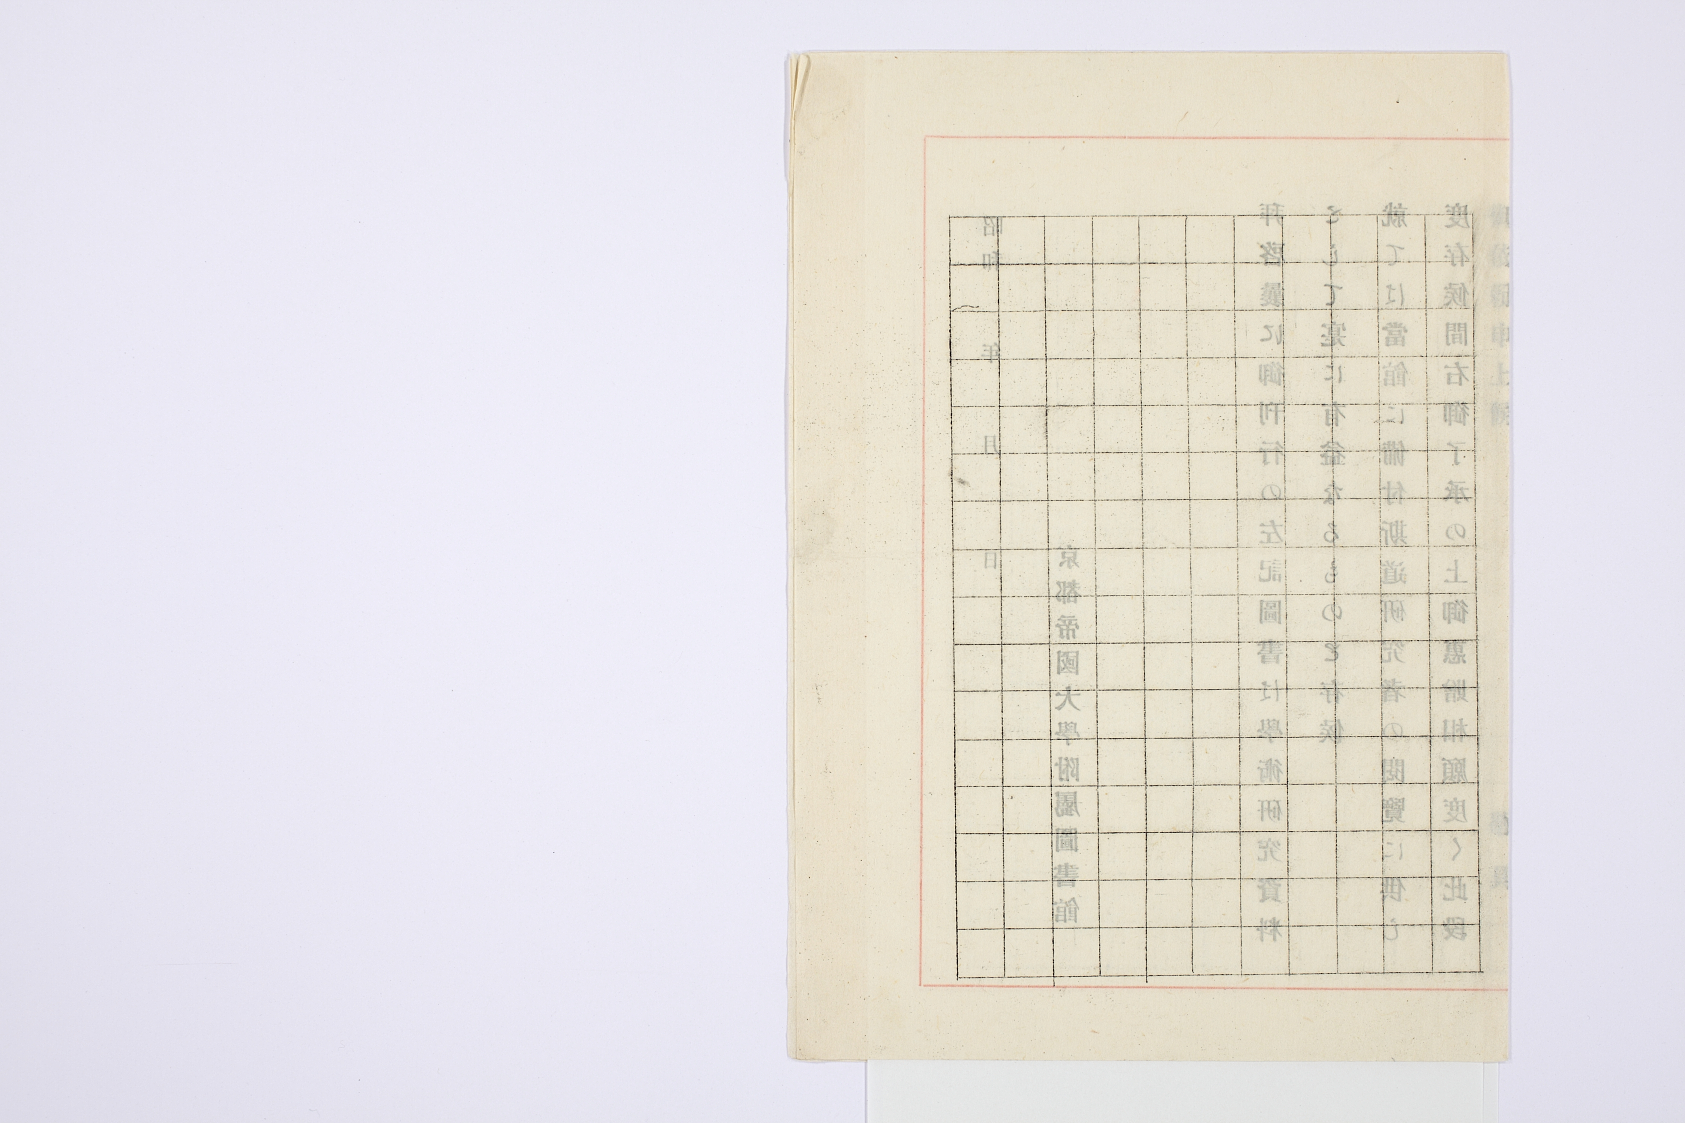 昭和　年　月　日
京都帝國大學附屬圖書館
拝啓曩に御刊行の左記圖書は學術研究資料
として寔に有益なるものと存候
就ては當館に備付斯道研究者の閲覽に供し
度存候間右御了承の上御惠贈相願度く此段
御依頼申上候　敬具